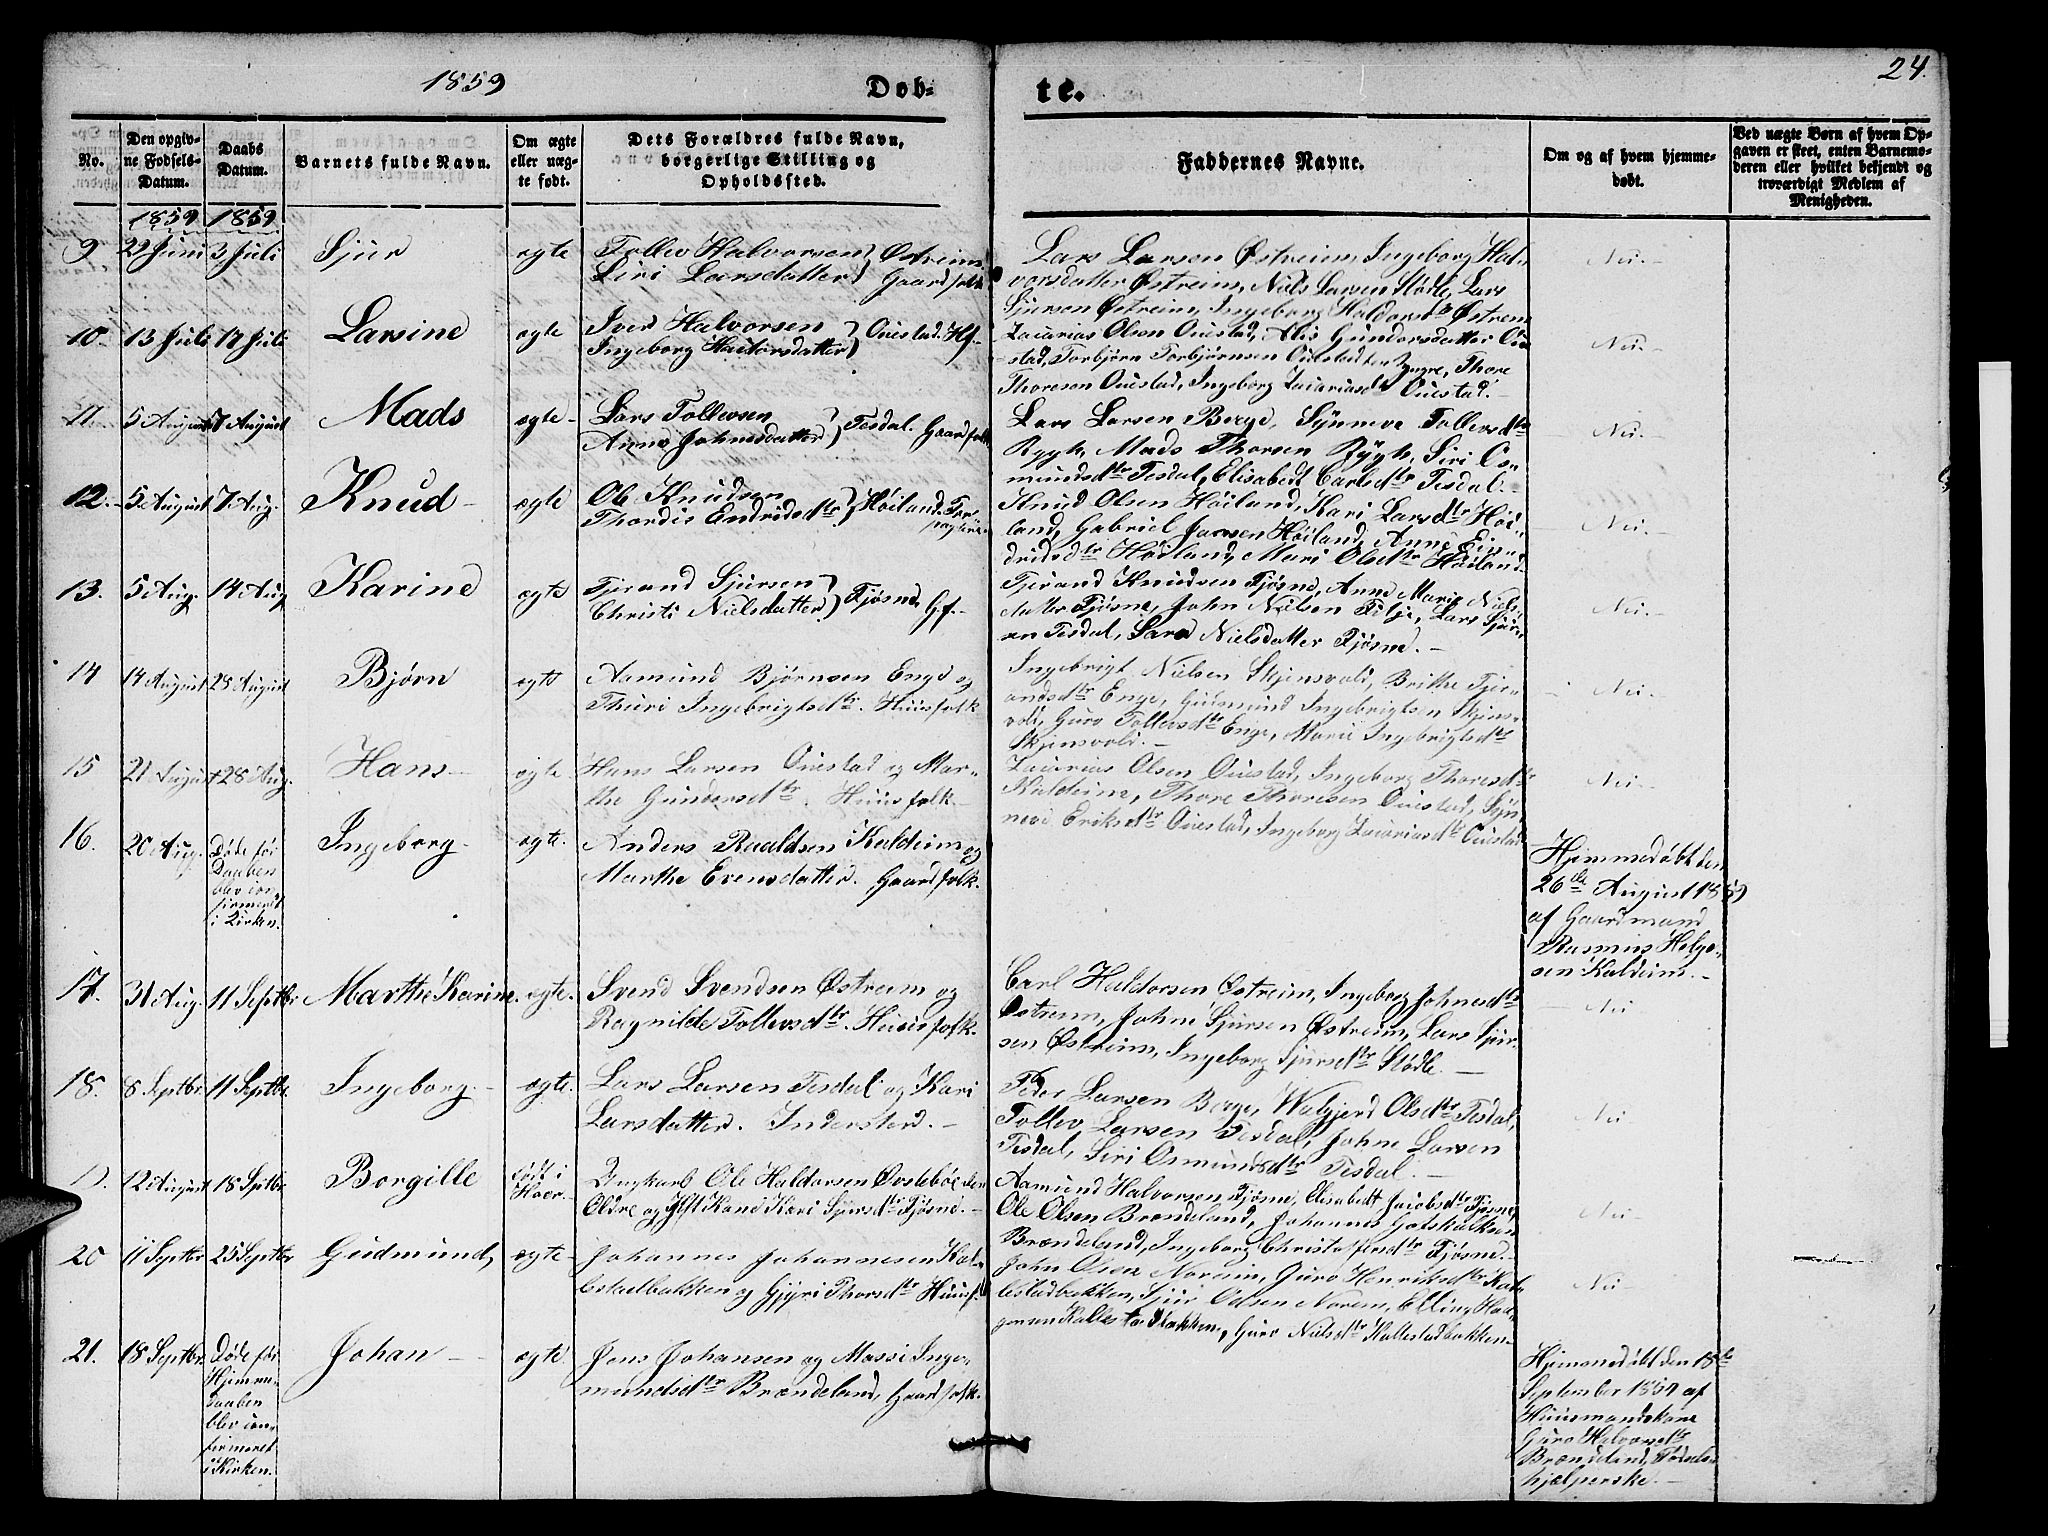 1859
Døb-
te.
24.
No.
Den opgiv-
ne Fødsels-
Datum.
Daabs
Datum.
Barnets fulde Navn.
Om ægte
eller uæg-
te født.
Dets Forældres fulde Navn,
borgerlige Stilling og
Opholdssted.
Faddernes Navne.
Om og af hvem hjemme-
døbt.
Ved uægte Børn af hvem Op-
gaven er skeet, enten Barnemo-
deren eller hvilket bekjendt og
troværdigt Medlem af
Menigheden.
1859 1859
9 22 Juni 3 Juli Sjur ægte
Tollev Halvorsen } Østreim
Siri Larsdatter } Gaardfolk
Lars Larsen Østreim, Ingeborg Hal-
vorsdatter Østreim, Niels Larsen Stødle, Lars
Sjursen Østreim, Ingeborg Haldorsdtr Østrem
Nei.-
10. 13 Juli 17 Juli Larsine ægte
Iver Halvorsen } Ouestad. Hf.-
Ingeborg Haktorsdatter }
Zacarias Olsen Ouestad, Alis Gundersdatter Oue-
stad, Torbjørn Torbjørnsen Ouestad den Yngre, Thore
Thoresen Ouestad, Ingeborg Zacariasdtr Ouestad.-
Nei.-
11. 5 August 7 August Mads ægte-
Lars Tollevsen } Tesdal. Gaardfolk
Anna Johnesdatter }
Lars Larsen Berge, Synneva Tollevsdtr
Rygh, Mads Thorsen Rygh, Siri Os-
mundsdtr Tesdal, Elisabedt Carlsdtr Tesdal.-
Nei.-
12.- 5 August 7 Aug. Knud- ægte
Ole Knudsen } Høiland.
Thordis Endridsdtr }
Knud Olsen Høiland, Kari Larsdtr Høi-
land, Gabriel Jansen Høiland, Anne En-
dridsdtr Høiland, Mari Olsdtr Høiland.
Nei.-
13. 5 Aug. 14 Aug Karine ægte
Tjerand Sjursen } Fjøsne, Gf.-
Christi Nielsdatter }
Tjerand Knudsen Fjøsne, Anne Marie Niels-
datter Fjøsne, John Nielsen Tilje, Lars Sjur-
en Tesdal, Sara Nielsdatter Fjøsne.-
Nei.-
14 14 August 28 August Bjørn ægte
Asmund Bjørnsen Enge og
Thuri Ingebrigtsdtr. Huusfolk
Ingebrigt Nielsen Skjensvold, Brithe Tjer-
andsdtr Enge, Gudmund Ingebrigtsen Skjens-
vold, Guro Tollevsdtr Enge, Marie Ingebrigtsdtr
Skjensvold.-
Nei.-
15 21 August 28 Aug. Hans- ægte.
Hans Larsen Ouestad og Mar-
the Gundersdtr. Huusfolk-
Zacarias Olsen Ouestad, Ingeborg Thoresdtr
Kaldeim, Thore Thoresen Ouestad, Syn-
nevi Eriksdtr Ouestad, Ingeborg Zacariasdtr Ouestad
Nei-
16. 20 Aug. Døde før
Daaben
blev con-
firmeret
i Kirken.
Ingeborg- ægte.
Anders Raaldsen Kaldeim og
Marthe Evensdatter. Gaardfolk.
Hjemmedøbt den
26de August 1859
af Gaardmand
Rasmus Helge-
sen Kaldeim.-
17. 31 Aug. 11 Septbr Marthe Karine. ægte.
Svend Svendsen Østreim og
Ragnilde Tollevsdtr. Huusfolk.
Carl Haldorsen Østreim, Ingeborg Johnesdtr
Østreim, Johne Sjursen Østreim, Lars Sjur-
sen Østreim, Ingeborg Sjursdtr Stødle.-
Nei
18. 8 Septbr 11 Septbr. Ingeborg.- ægte.
Lars Larsen Tesdal og Kari
Larsdatter. Inderster.-
Peder Larsen Berge, Walgjerd Olsdtr Tesdal,
Tollev Larsen Tesdal, Johne Larsen
Tesdal, Siri Osmundsdtr Tesdal.-
Nei-
12 August 18 Septbr Borgille født i
Hoer.-
Ungkarl Ole Haldorsen Østebøe den
Ældre og Kone Kari Sjursdtr Fjøsne.-
Asmund Halvorsen Fjøsne, Elisabett Jacobsdtr Fjøsne,
Ole Olsen Brændeland, Johannes Gotskalksen
Brændeland, Ingeborg Christoffersdtr Fjøsne.-
Nei-
20 11 Septbr 25 Septbr Gudmund, ægte-
Johannes Johannesen Kal-
lestadbakken og Gjyri Thorsdtr Huusf.
John Olsen Noreim, Guro Henriksdtr Kal-
lestadbakken, Sjur Olsen Norem, Elling Had-
Kallestadbakken, Guro Nielsdtr Kallestadbakken-
Nei-
21. 18 Septbr. Døde før
Hjemme-
daaben
blev con-
firmeret
i Kirken.
Johan- ægte.
Jens Johansen og Massi Inge-
mundsdtr Brændeland, Gaardfolk.
Hjemmedøbt den 18de
September 1859 af
Huusmandskone
Guro Halvorsdtr
Brændeland, Fødsels-
hjælperske.-